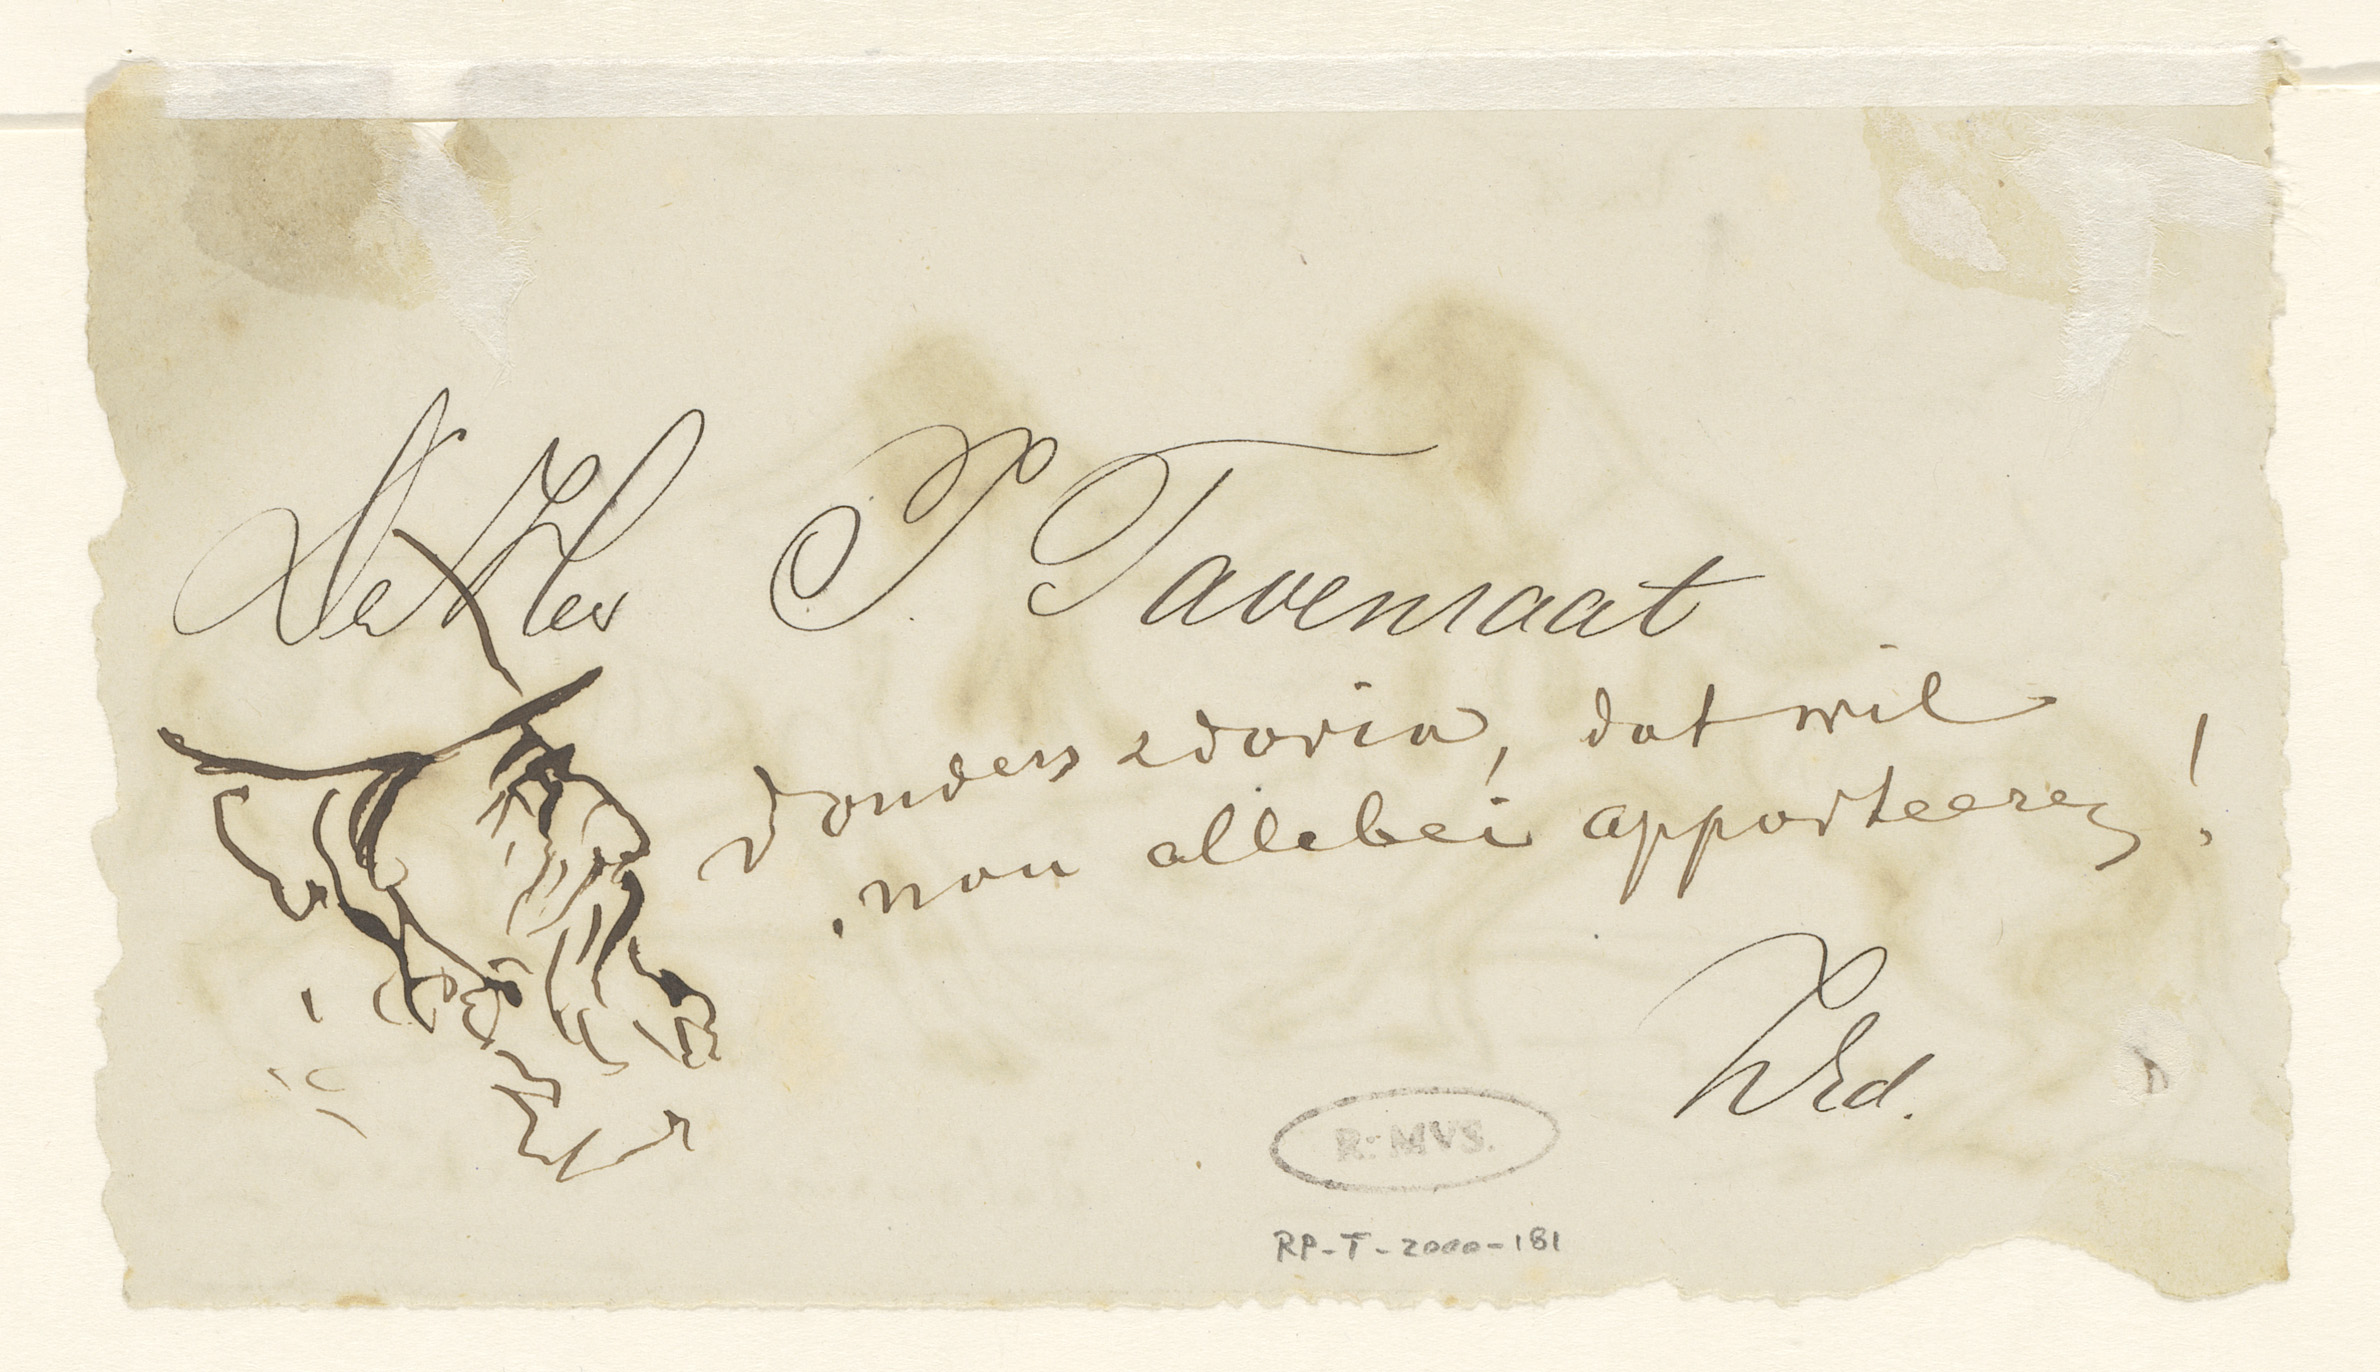 De Heer P. Tavenraat
donders edoria, dat wil
nou allebei apporteeren!
WEd.
R: MVS.
RP-T-2000-181